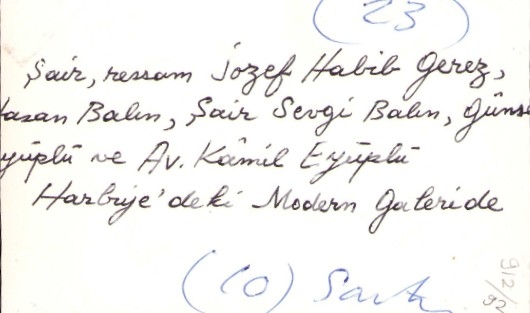 (23)
Şair, ressam Jozef Habib Gerez,
Hasan Balın, Şair Sevgi Balın, Güns
yüplü ve Av. Kâmil Eyüplü
Harbiye'deki Modern Galeride
(10)
912/92